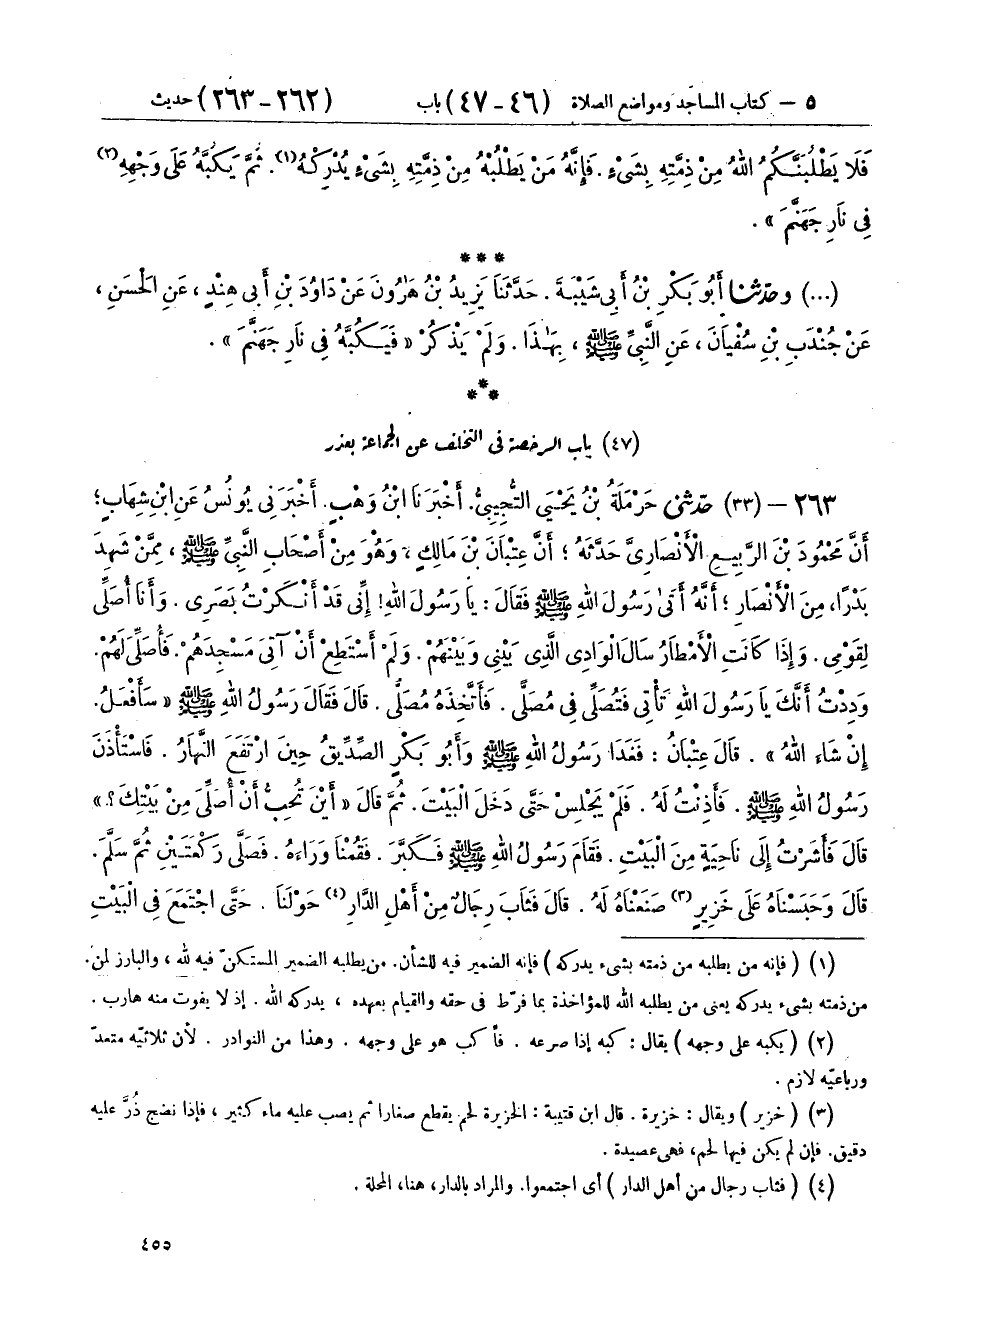 ٥ – كتاب المساجد ومواضع الصلاة (٤٦ - ٤٧) باب (٢٦٢ - ٢٦٣) حديث
فَلَا يَطْلُبَنَّكُمُ اللهُ مِنْ ذِمَّتِهِ بِشَىْءٍ . فَإِنَّهُ مَنْ يَطْلُبْهُ مِنْ ذِمَّتِهِ بِشَىْءٍ يُدْرِكْهُ(١). ثُمَّ يَكُبَّهُ عَلَى وَجْهِهِ(٢)
فِى نَارِ جَهَنَّمَ » .
***
(...) وحَدَّثَنَا أَبُو بَكْرِ بْنُ أَبِى شَيْبَةَ . حَدَّثَنَا يَزِيدُ بْنُ هَرُونَ عَنْ دَاوُدَ بْنِ أَبِى هِنْدٍ ، عَنِ الْحَسَنِ ،
عَنْ جُنْدَبِ بْنِ سُفْيَانَ ، عَنِ النَّبِىِّ ﷺ ، بِهَذَا . وَلَمْ يَذْكُرْ « فَيَكُبَّهُ فِى نَارِ جَهَنَّمَ » .
***
(٤٧) باب الرخصة فى التخلف عن الجماعة بعذر
٢٦٣ – (٣٣) حَدَّثَنِى حَرْمَلَةُ بْنُ يَحْيَى التُّجِيبِىُّ. أَخْبَرَنَا ابْنُ وَهْبٍ. أَخْبَرَنِى يُونُسُ عَنِ ابْنِ شِهَابٍ؛
أَنَّ مَحْمُودَ بْنَ الرَّبِيعِ الْأَنْصَارِىَّ حَدَّثَهُ ؛ أَنَّ عِتْبَانَ بْنَ مَالِكٍ ، وَهُوَ مِنْ أَصْحَابِ النَّبِىِّ ﷺ ، مِمَّنْ شَهِدَ
بَدْرًا، مِنَ الْأَنْصَارِ ؛ أَنَّهُ أَتَى رَسُولَ اللهِ ﷺ فَقَالَ : يَا رَسُولَ اللهِ! إِنِّى قَدْ أَنْكَرْتُ بَصَرِى . وَأَنَا أُصَلِّى
لِقَوْمِى . وَإِذَا كَانَتِ الْأَمْطَارُ سَالَ الْوَادِى الَّذِى بَيْنِى وَبَيْنَهُمْ . وَلَمْ أَسْتَطِعْ أَنْ آتِىَ مَسْجِدَهُمْ . فَأُصَلِّىَ لَهُمْ.
وَدِدْتُ أَنَّكَ يَا رَسُولَ اللهِ تَأْتِى فَتُصَلِّى فِى مُصَلًّى . فَأَتَّخِذَهُ مُصَلًّى . قَالَ فَقَالَ رَسُولُ اللهِ ﷺ « سَأَفْعَلُ.
إِنْ شَاءَ اللهُ » . قَالَ عِتْبَانُ : فَغَدَا رَسُولُ اللهِ ﷺ وَأَبُو بَكْرٍ الصِّدِّيقُ حِينَ ارْتَفَعَ النَّهَارُ . فَاسْتَأْذَنَ
رَسُولُ اللهِ ﷺ . فَأَذِنْتُ لَهُ . فَلَمْ يَجْلِسْ حَتَّى دَخَلَ الْبَيْتَ . ثُمَّ قَالَ « أَيْنَ تُحِبُّ أَنْ أُصَلِّىَ مِنْ بَيْتِكَ ؟ . »
قَالَ فَأَشَرْتُ إِلَى نَاحِيَةٍ مِنَ الْبَيْتِ . فَقَامَ رَسُولُ اللهِ ﷺ فَكَبَّرَ . فَقُمْنَا وَرَاءَهُ . فَصَلَّى رَكْعَتَيْنِ ثُمَّ سَلَّمَ.
قَالَ وَحَبَسْنَاهُ عَلَى خَزِيرٍ(٣) صَنَعْنَاهُ لَهُ . قَالَ فَثَابَ رِجَالٌ مِنْ أَهْلِ الدَّارِ(٤) حَوْلَنَا . حَتَّى اجْتَمَعَ فِى الْبَيْتِ
(١) ( فإنه من يطلبه من ذمته بشىء يدركه ) فإنه الضمير فيه للشأن. من يطلبه الضمير المستكنّ فيه لله ، والبارز لمن.
من ذمته بشىء يدركه يعنى من يطلبه الله للمؤاخذة بما فرّط فى حقه والقيام بعهده ، يدركه الله . إذ لا يفوت منه هارب .
(٢) ( يكبه على وجهه ) يقال : كبه إذا صرعه . فأكب هو على وجهه . وهذا من النوادر . لأن ثلاثيّه متعدّ
ورباعيّه لازم .
(٣) ( خزير ) ويقال : خزيرة . قال ابن قتيبة : الخزيرة لحم يقطع صغارا ثم يصب عليه ماء كثير ، فإذا نضج ذُرَّ عليه
دقيق. فإن لم يكن فيها لحم، فهى عصيدة .
(٤) ( فثاب رجال من أهل الدار ) أى اجتمعوا. والمراد بالدار، هنا، المحلة .
٤٥٥